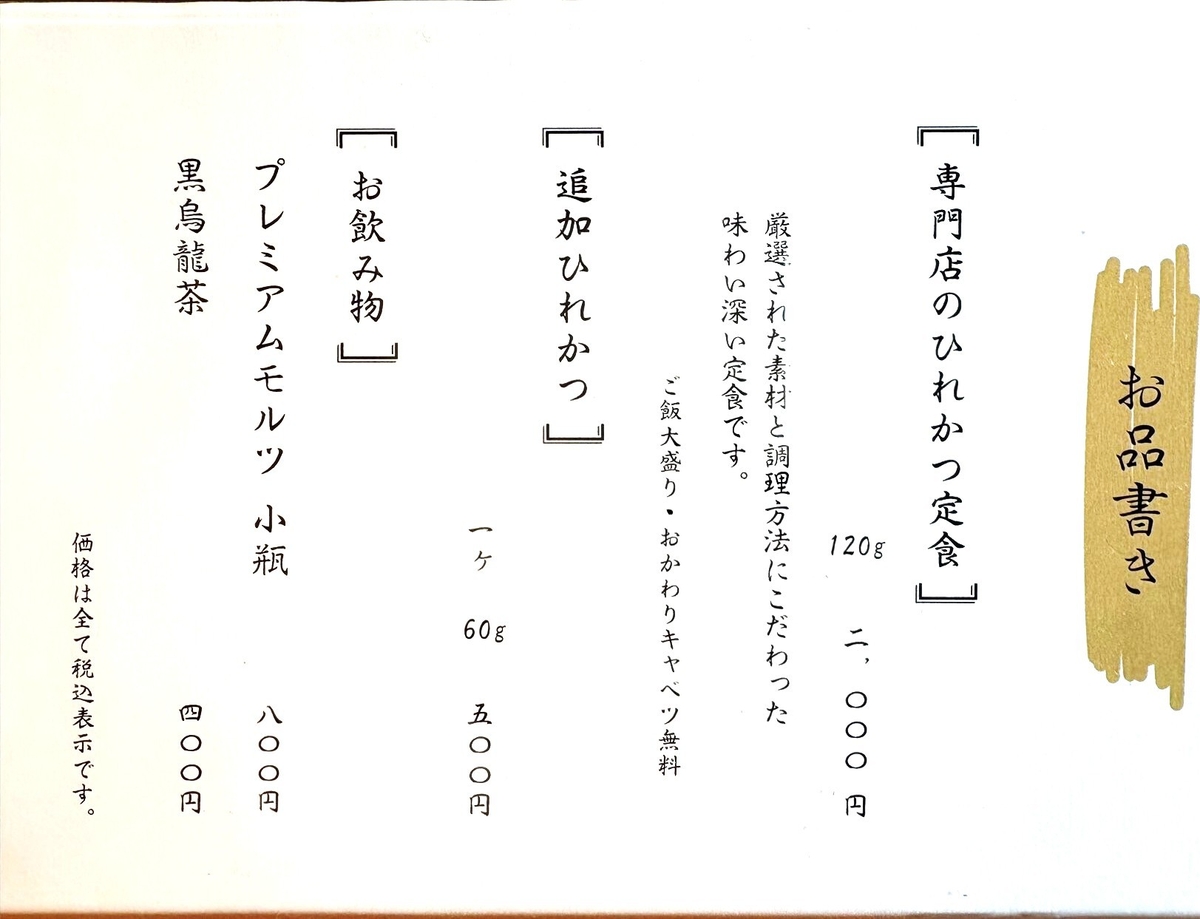 お品書き
専門店のひれかつ定食
120g 二,〇〇〇円
厳選された素材と調理方法にこだわった
味わい深い定食です。
ご飯大盛り・おかわりキャベツ無料
追加ひれかつ
一ケ 60g 五〇〇円
お飲み物
プレミアムモルツ 小瓶 八〇〇円
黒烏龍茶 四〇〇円
価格は全て税込表示です。